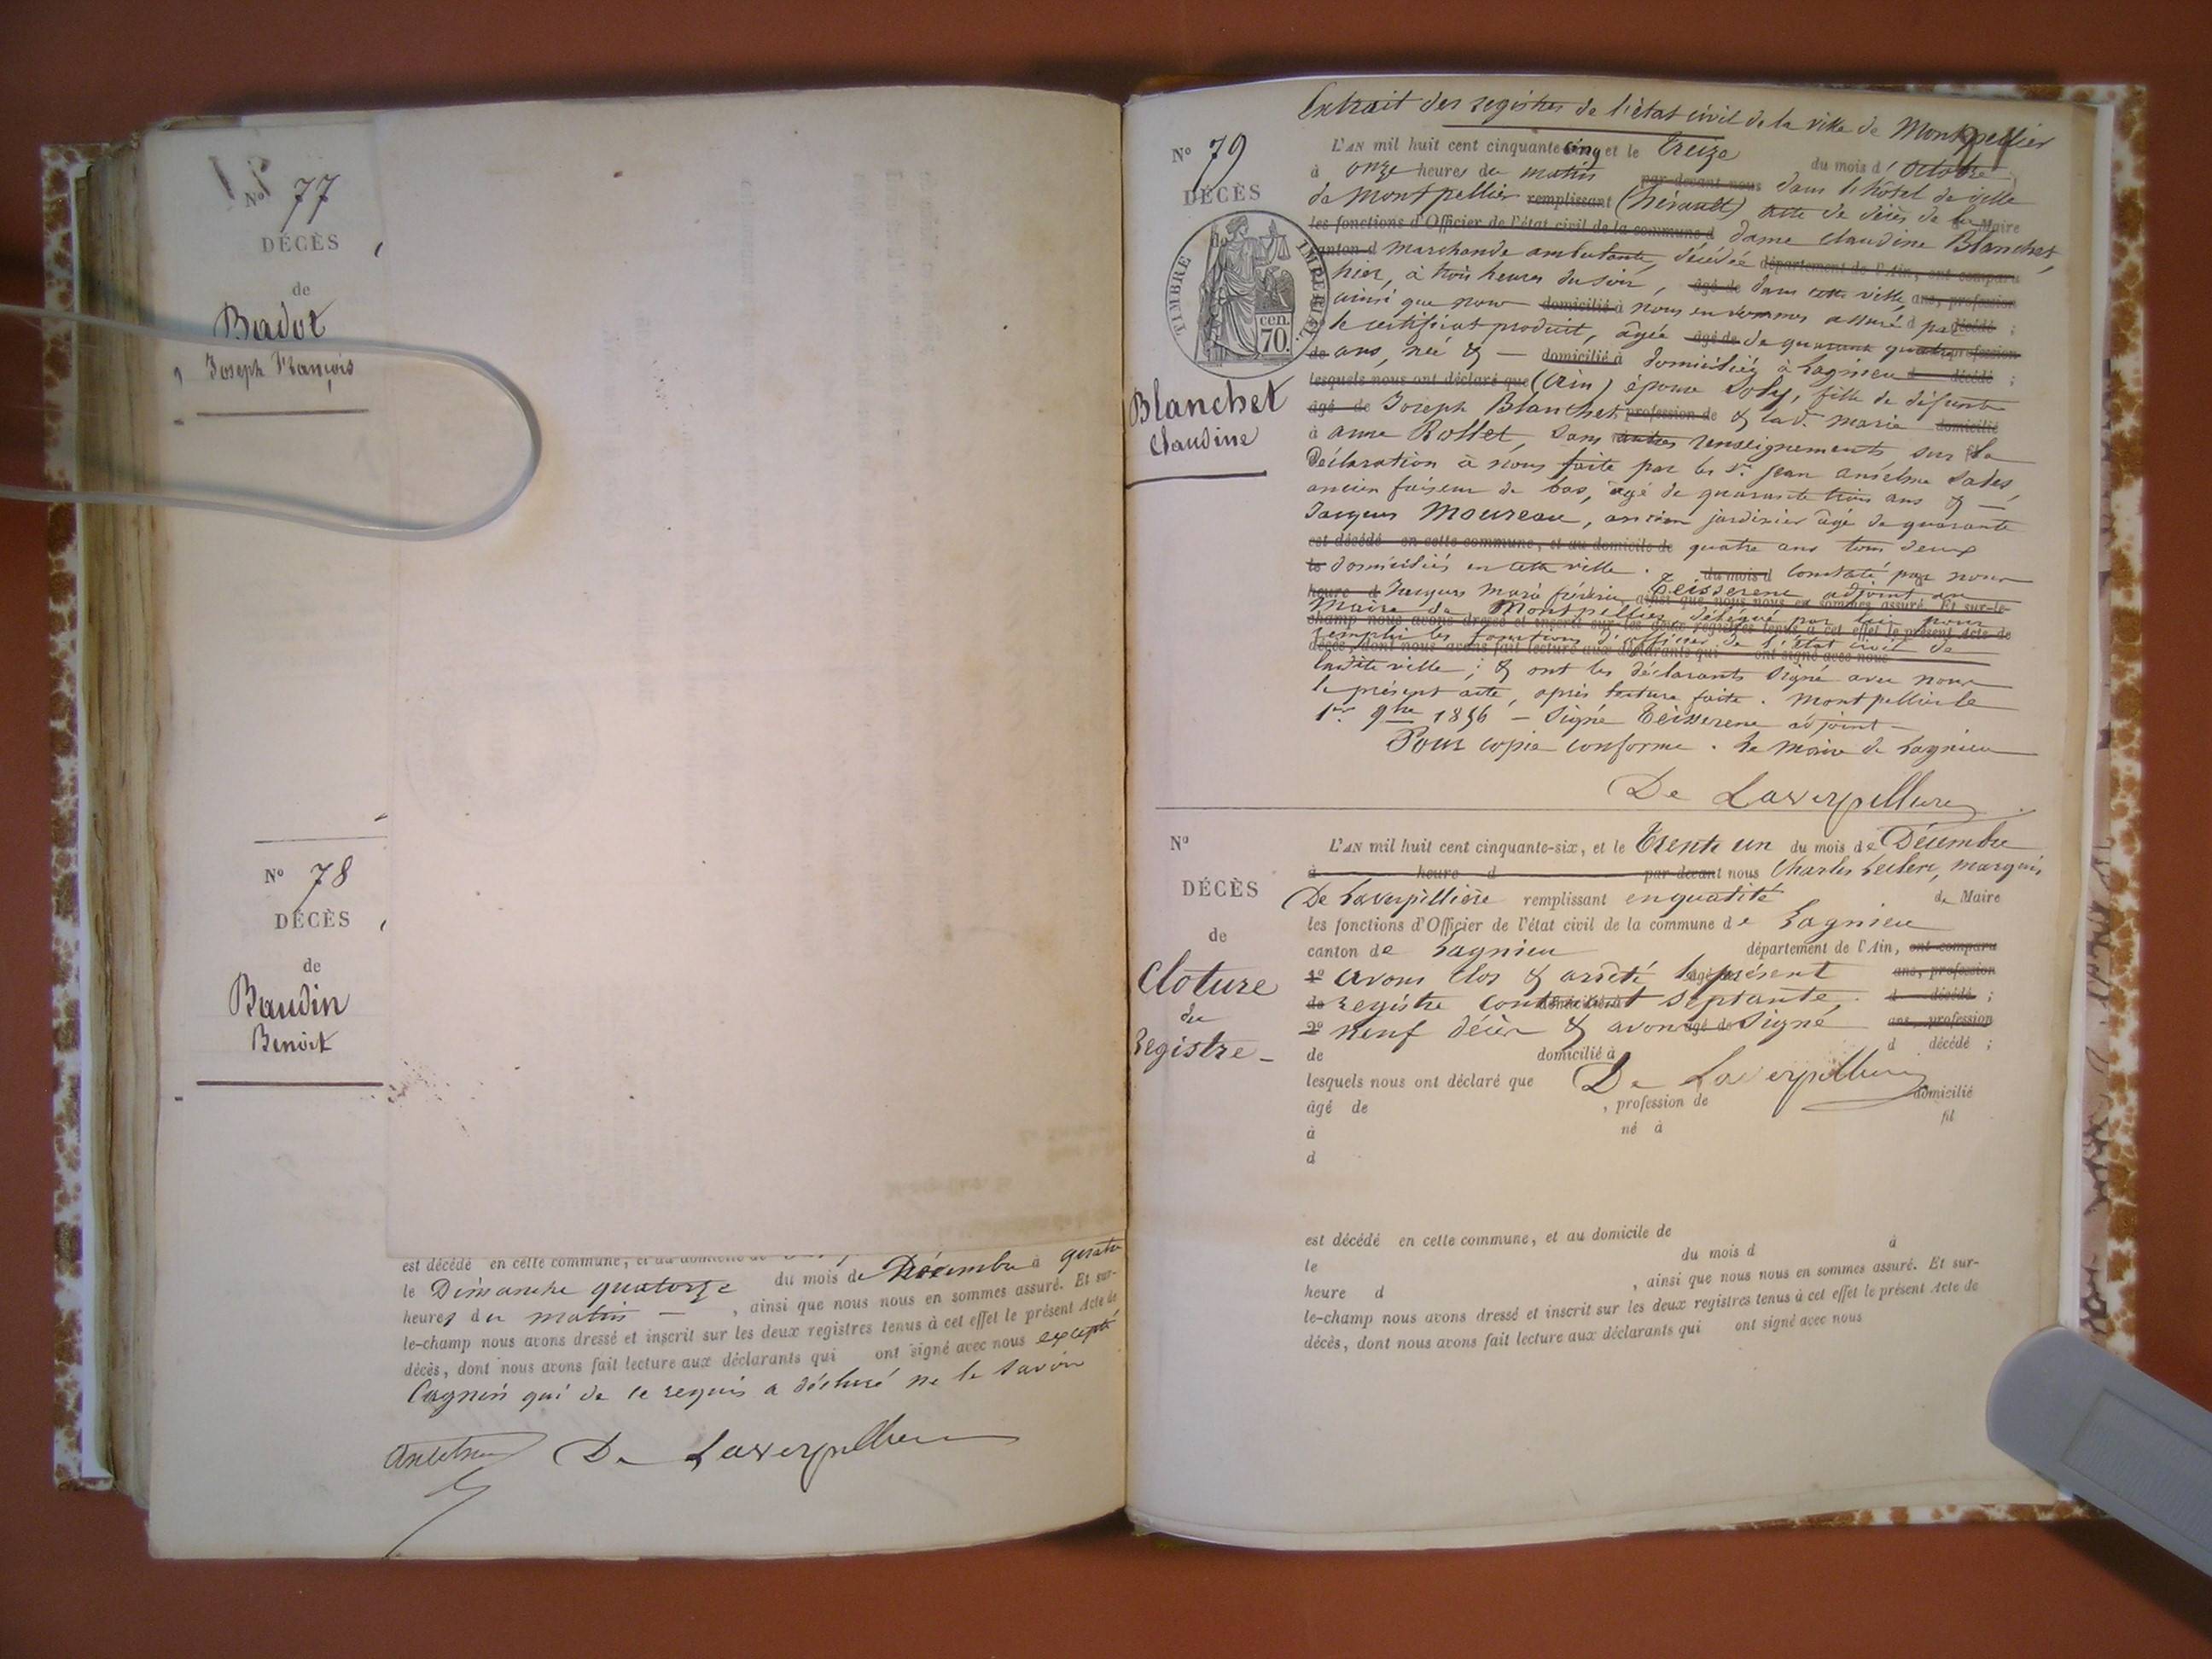 N° 77
DÉCÈS
de
Badot
Joseph François
N° 78
DÉCÈS
de
Baudin
Benoit
est décédé en cette commune, et au domicile de
le Dimanche quatorze du mois de Décembre à quatre
heures du matin — , ainsi que nous nous en sommes assuré. Et sur-
le-champ nous avons dressé et inscrit sur les deux registres tenus à cet effet le présent Acte de
décès, dont nous avons fait lecture aux déclarants qui ont signé avec nous excepté
qui de ce requis a déclaré ne le savoir
De Laverpilliere
Extrait des registres de l'état civil de la ville de Montpellier
N° 79
DÉCÈS
TIMBRE IMPERIAL
70 cen.
Blanchet
Claudine
L'AN mil huit cent cinquante cinq et le treize du mois d'Octobre
à onze heures du matin par-devant nous dans l'hôtel de ville
de Montpellier remplissant (hérault) acte de décès de la Maire
les fonctions d'Officier de l'état civil de la commune d dame Claudine Blanchet,
canton d marchande ambulante, décédée département de l'Ain, ont comparu
hier, à trois heures du soir, âgé de dans cette ville, ans, profession
ainsi que nous domicilié à nous en sommes assuré d par décédé ;
le certificat produit, âgée âgé de de quarante quatre profession
de ans, née & — domicilié à domiciliée à Lagnieu d décédé ;
lesquels nous ont déclaré que (Ain) épouse Soly, fille de défunts
âgé de Joseph Blanchet profession de & lad. marie domicilié
à anne Rollet, sans autres renseignements sur la
Déclaration à nous faite par les Sr. Jean anselme Sales,
ancien faiseur de bas, âgé de quarante trois ans & —
Jacques Moureau, ancien jardinier âgé de quarante
est décédé en cette commune, et au domicile de quatre ans tous deux
le domiciliés en cette ville. du mois d Constaté par nous
heure d Jacques Marie frédéric Teisserenc adjoint au ainsi que nous nous en sommes assuré. Et sur-le-
Maire de Montpellier, délégué par lui pour
champ nous avons dressé et inscrit sur les deux registres tenus à cet effet le présent Acte de
remplir les fonctions d'officier de l'état civil de
décès, dont nous avons fait lecture aux déclarants qui ont signé avec nous
ladite ville ; & ont les déclarants signé avec nous
le présent acte, après lecture faite. Montpellier le
1er 9bre 1856 — Signé Teisserenc adjoint —
Pour copie conforme. Le Maire de Lagnieu
De Laverpilliere
N°
DÉCÈS
de
Cloture
du
Registre —
L'AN mil huit cent cinquante-six, et le trente un du mois de Décembre
à heure d par-devant nous Charles Leclerc, marquis
De Laverpillière remplissant en qualité de Maire
les fonctions d'Officier de l'état civil de la commune de Lagnieu
canton de Lagnieu département de l'Ain, ont comparu
1° avons clos & arrêté âgé de le présent ans, profession
de registre contenant domicilié à septante, d décédé ;
2° neuf décès & avons âgé de signé ans, profession
de domicilié à d décédé ;
lesquels nous ont déclaré que De Laverpilliere
âgé de , profession de domicilié
à né à fil
d
est décédé en cette commune, et au domicile de
le du mois d à
heure d , ainsi que nous nous en sommes assuré. Et sur-
le-champ nous avons dressé et inscrit sur les deux registres tenus à cet effet le présent Acte de
décès, dont nous avons fait lecture aux déclarants qui ont signé avec nous